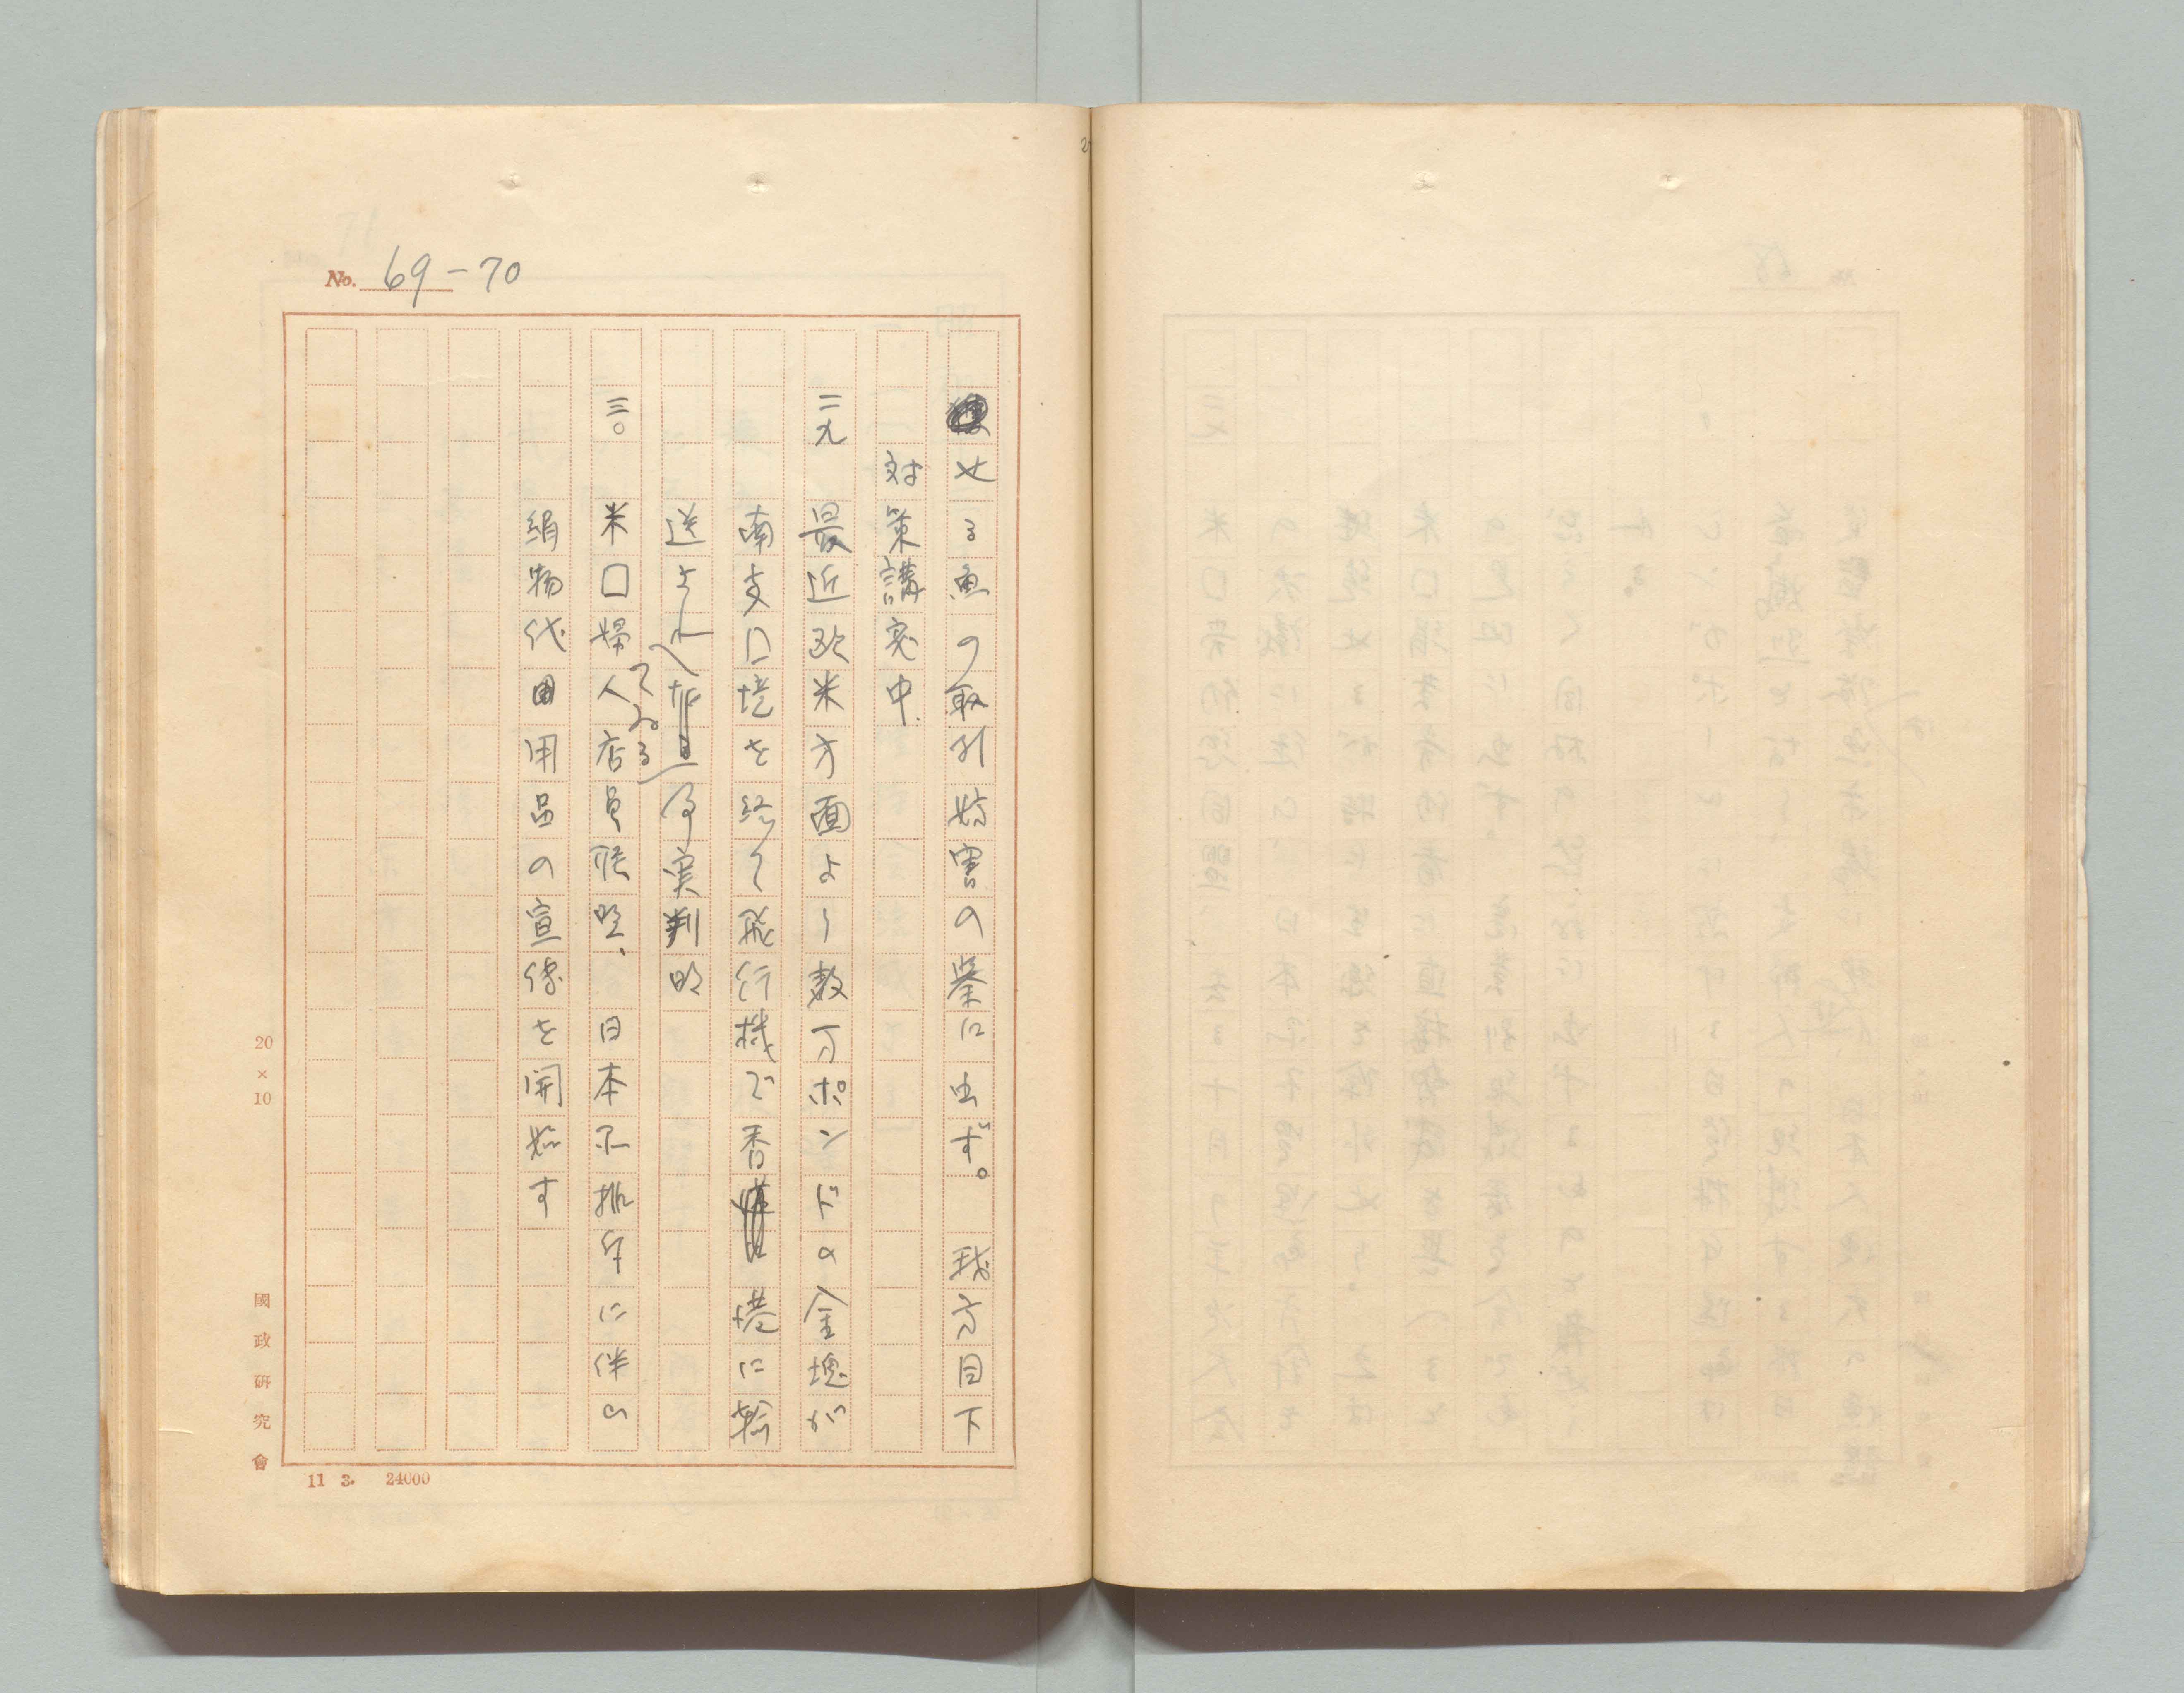 No. 69-70
せる魚の取引妨害の挙に出ず。 我方目下
対策講究中。
二九 最近欧米方面より数万ポンドの金塊が
南支国境を経て飛行機で香港に輸
送されてゐる事実判明
三〇 米国婦人店員聯盟、日本品排斥に伴ひ
絹物代用品の宣伝を開始す
20×10
國政研究會
11 3. 24000